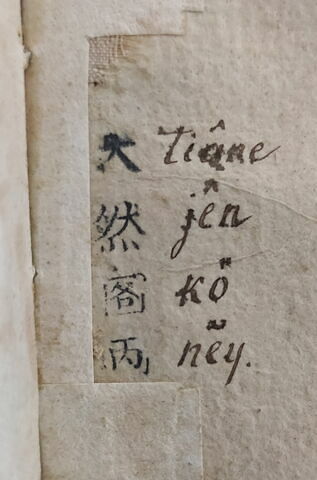 天 tiâne
然 jên
閣 kŏ
丙 nĕy.